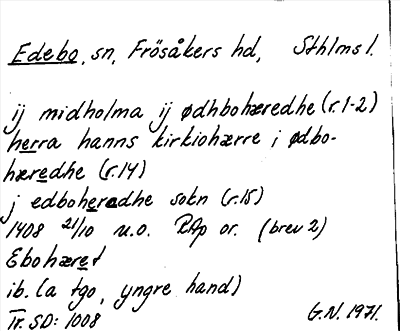 Edebo, sn, Frösåkers hd, Sthlms l.
ij midholma ij ødhbohæredhe (r.1-2)
herra hanns kirkiohærre i ødbo-
hæredhe (r.14)
j edboheredhe sokn (r.15)
1408 21/10 u.o. RAp or. (brev 2)
Ebohæret
ib. (a tgo, yngre hand)
Tr. SD: 1008
G.N. 1971.